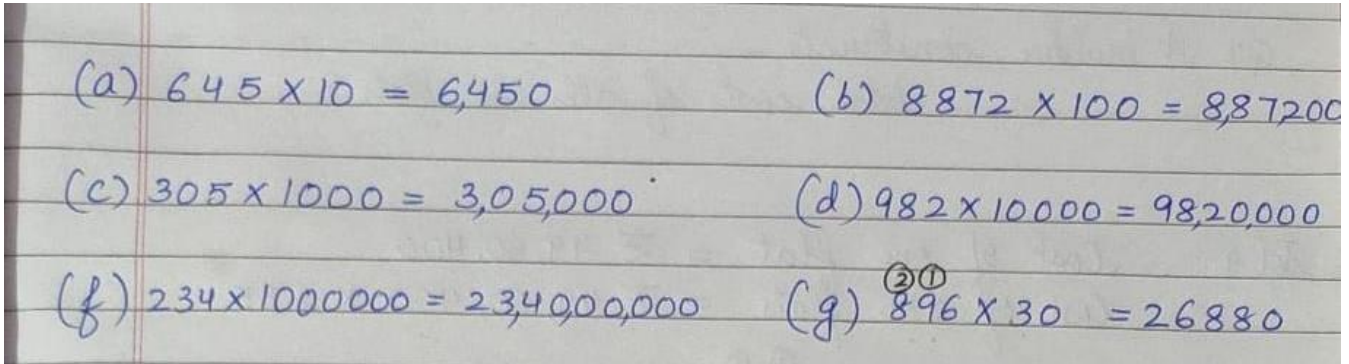 (a) 645 × 10 = 6,450 (b) 8872 × 100 = 8,87,200
(c) 305 × 1000 = 3,05,000 (d) 982 × 10000 = 98,20,000
② ①
(f) 234 × 1000000 = 23,40,00,000 (g) 896 × 30 = 26880